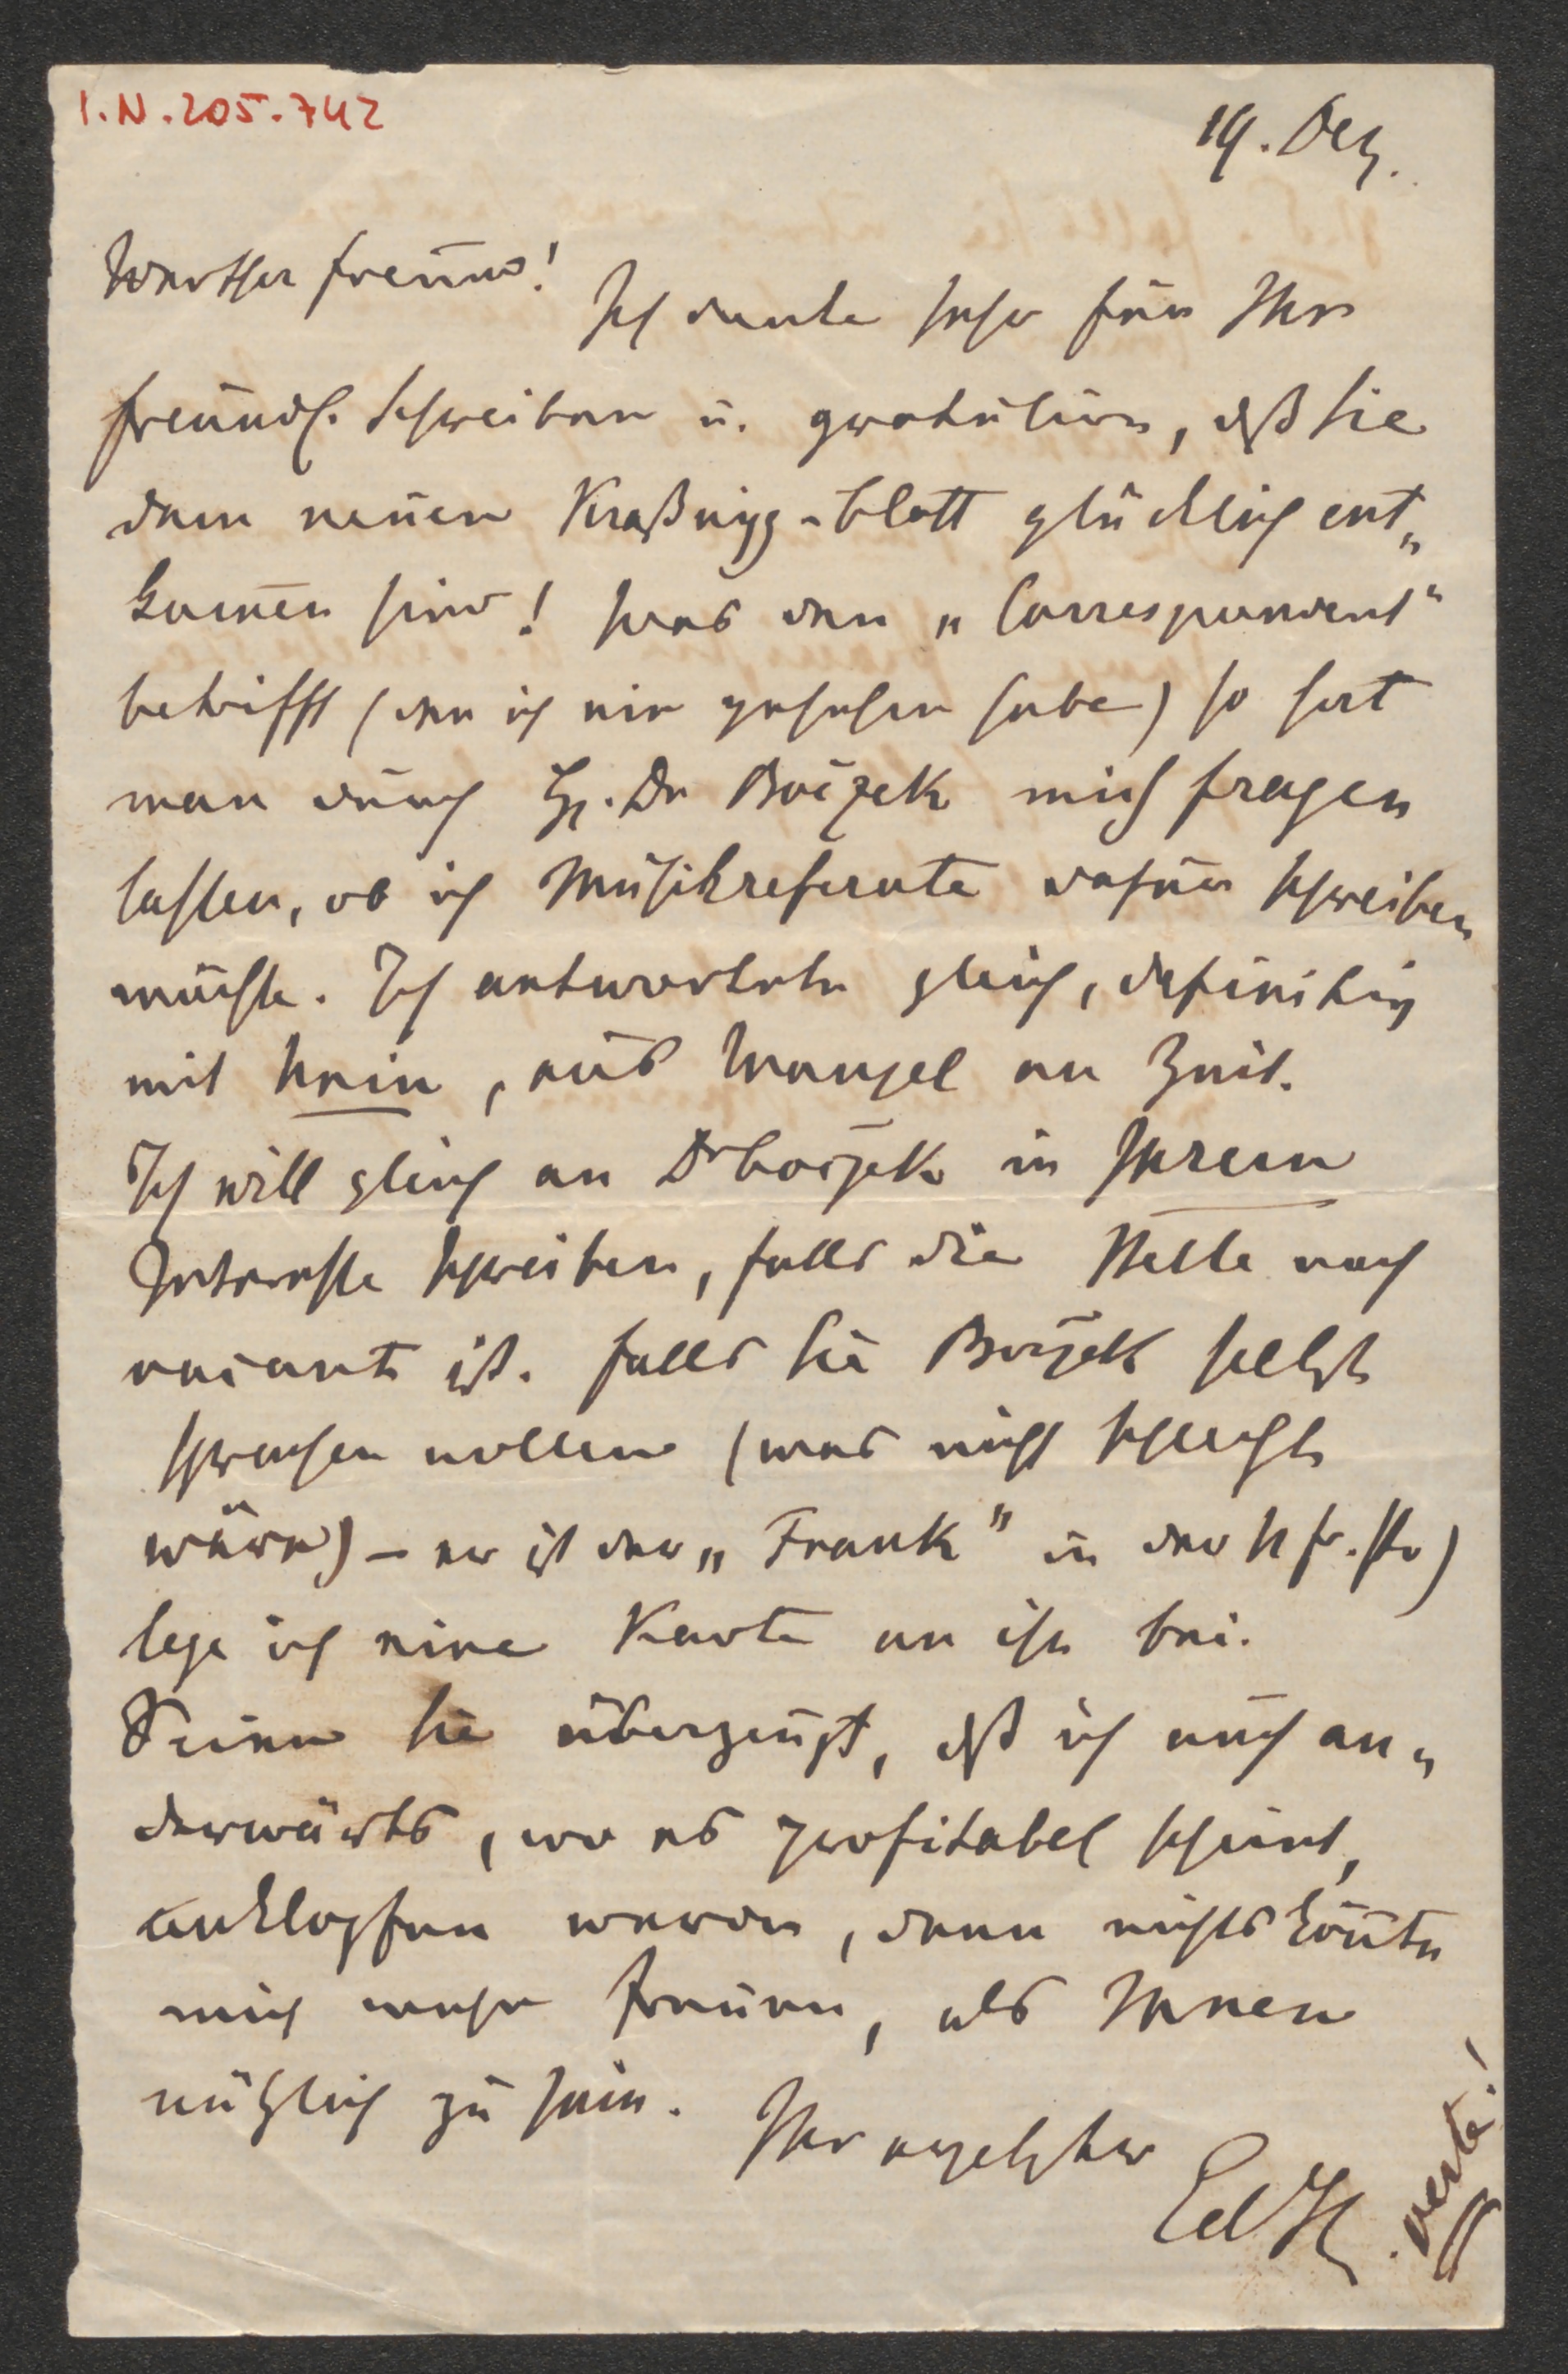 I.N. 205.742
19. Dez.
Werther Freund!
Ich danke sehr für Ihr
freundl. Schreiben u. gratulire, dß Sie
dem neuen Kraßnigg-Blatt glücklich ent„
kom̄en sind! Was den „Correspondent“
betrifft (den ich nie gesehen habe) so hat
man durch H. Dr Baczek mich fragen
lassen, ob ich Musikreferate dafür schreiben
möchte. Ich antwortete gleich, definitiv
mit Nein, aus Mangel an Zeit.
Ich will gleich an Dr in Ihrem
Interesse schreiben, falls die Stelle noch
vacant ist. Falls Sie selbst
sprechen wollen (was nicht schlecht
wäre) – er ist der „Frank“ in der N fr. Pr)
lege ich eine Karte an ihn bei.
Seien Sie überzeugt, dß ich auch an„
derwärts, wo es profitabel scheint,
anklopfen werde, denn nichts kön̄te
mich mehr freuen, als Ihnen
nützlich zu sein.
Ihr ergebster
Ed H
verte!